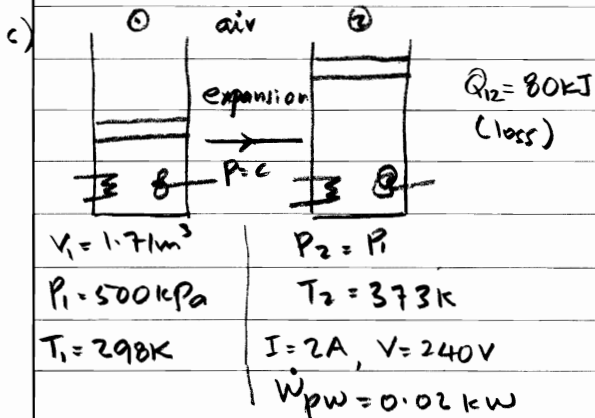 c) ① air ②
expansion
P=c
Q₁₂ = 80kJ
(loss)
V₁ = 1.71m³
P₁ = 500kPa
T₁ = 298K
P₂ = P₁
T₂ = 373K
I = 2A, V = 240V
Ẇpw = 0.02 kW